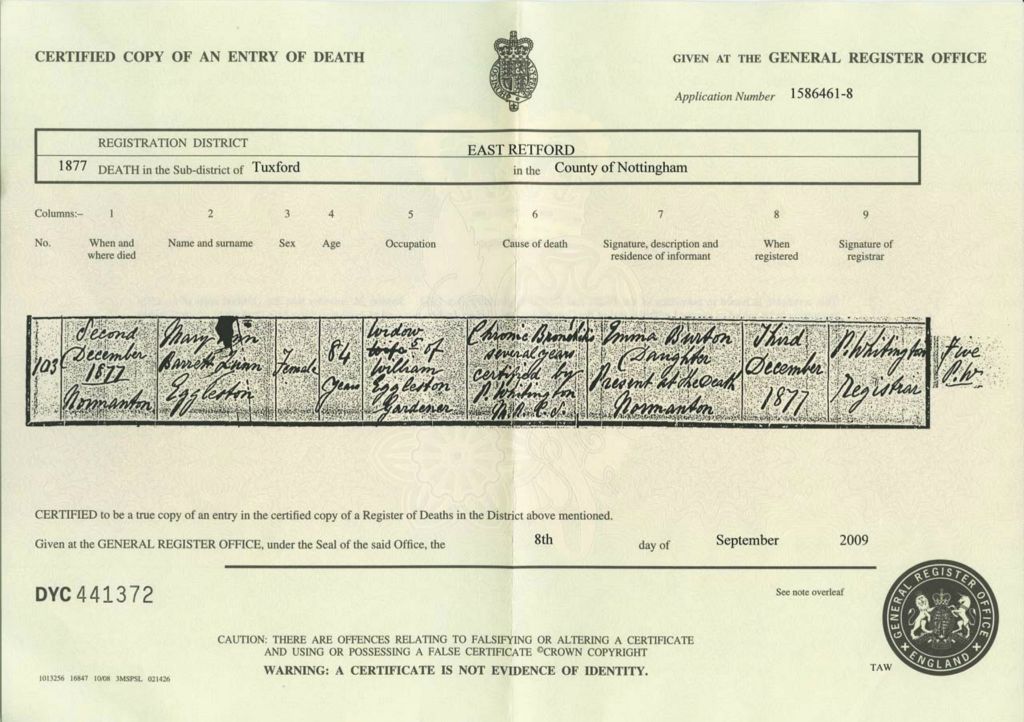 CERTIFIED COPY OF AN ENTRY OF DEATH
GIVEN AT THE GENERAL REGISTER OFFICE
Application Number 1586461-8
REGISTRATION DISTRICT EAST RETFORD
1877 DEATH in the Sub-district of Tuxford in the County of Nottingham
Columns:– 1 2 3 4 5 6 7 8 9
No. When and where died Name and surname Sex Age Occupation Cause of death Signature, description and residence of informant When registered Signature of registrar
103
Second
December
1877
Normanton
Mary
Barrett Lynn
Eggleston
Female
84
Years
Widow
wife of
William
Eggleston
Gardener
Chronic Bronchitis
several years
certified by
P. Whitington
M.R.C.S.
Emma Burton
Daughter
Present at the Death
Normanton
Third
December
1877
P. Whitington
Registrar
Five
P.W.
CERTIFIED to be a true copy of an entry in the certified copy of a Register of Deaths in the District above mentioned.
Given at the GENERAL REGISTER OFFICE, under the Seal of the said Office, the 8th day of September 2009
DYC 441372
See note overleaf
CAUTION: THERE ARE OFFENCES RELATING TO FALSIFYING OR ALTERING A CERTIFICATE
AND USING OR POSSESSING A FALSE CERTIFICATE ©CROWN COPYRIGHT
WARNING: A CERTIFICATE IS NOT EVIDENCE OF IDENTITY.
GENERAL REGISTER OFFICE
ENGLAND
TAW
1013256 16847 10/08 3MSPSL 021426